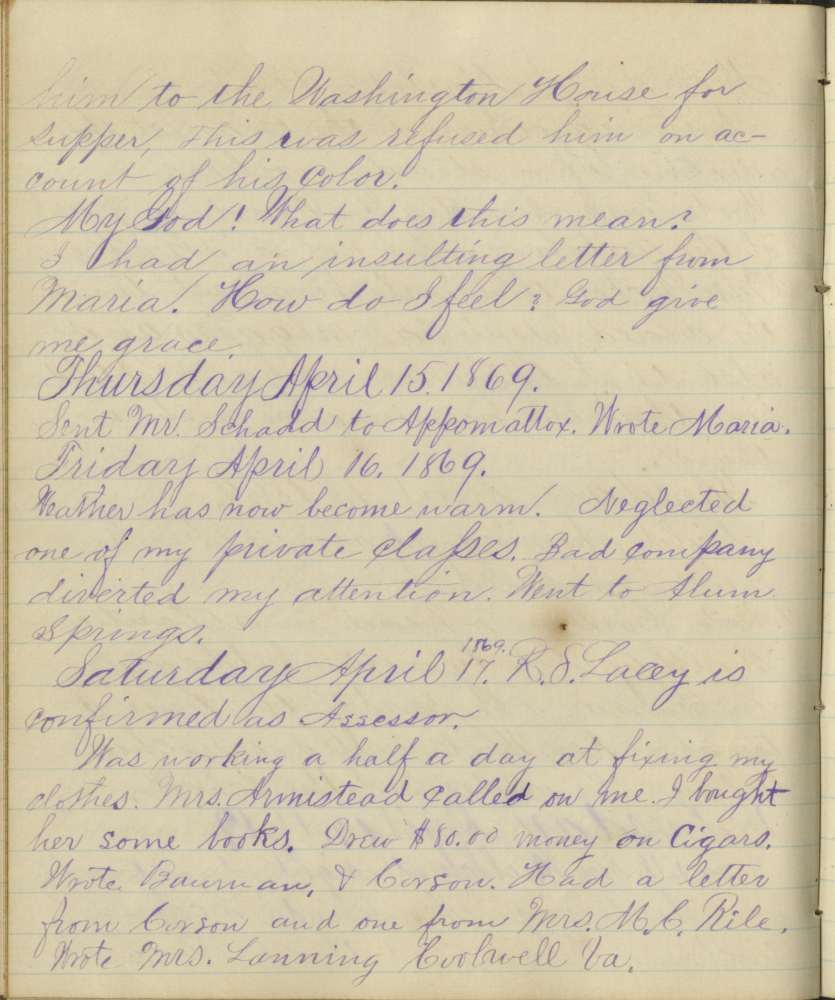 him to the Washington House for
supper, This was refused him on ac-
count of his Color.
My God! What does this mean?
I had an insulting letter from
Maria. How do I feel? God give
me grace.
Thursday April 15. 1869.
Sent Mr. Schadd to Appomattox. Wrote Maria.
Friday April 16. 1869.
Weather has now become warm. Neglected
one of my private classes. Bad company
diverted my attention. Went to Alum
Springs.
Saturday April 17. 1869. R. S. Lacey is
confirmed as Assessor.
Was working a half a day at fixing my
clothes. Mrs. Armistead called on me. I bought
her some books. Drew $80.00 money on Cigars.
Wrote Bauman, & Corson. Had a letter
from Corson and one from Mrs. M. C. Rile.
Wrote Mrs. Lanning Va.